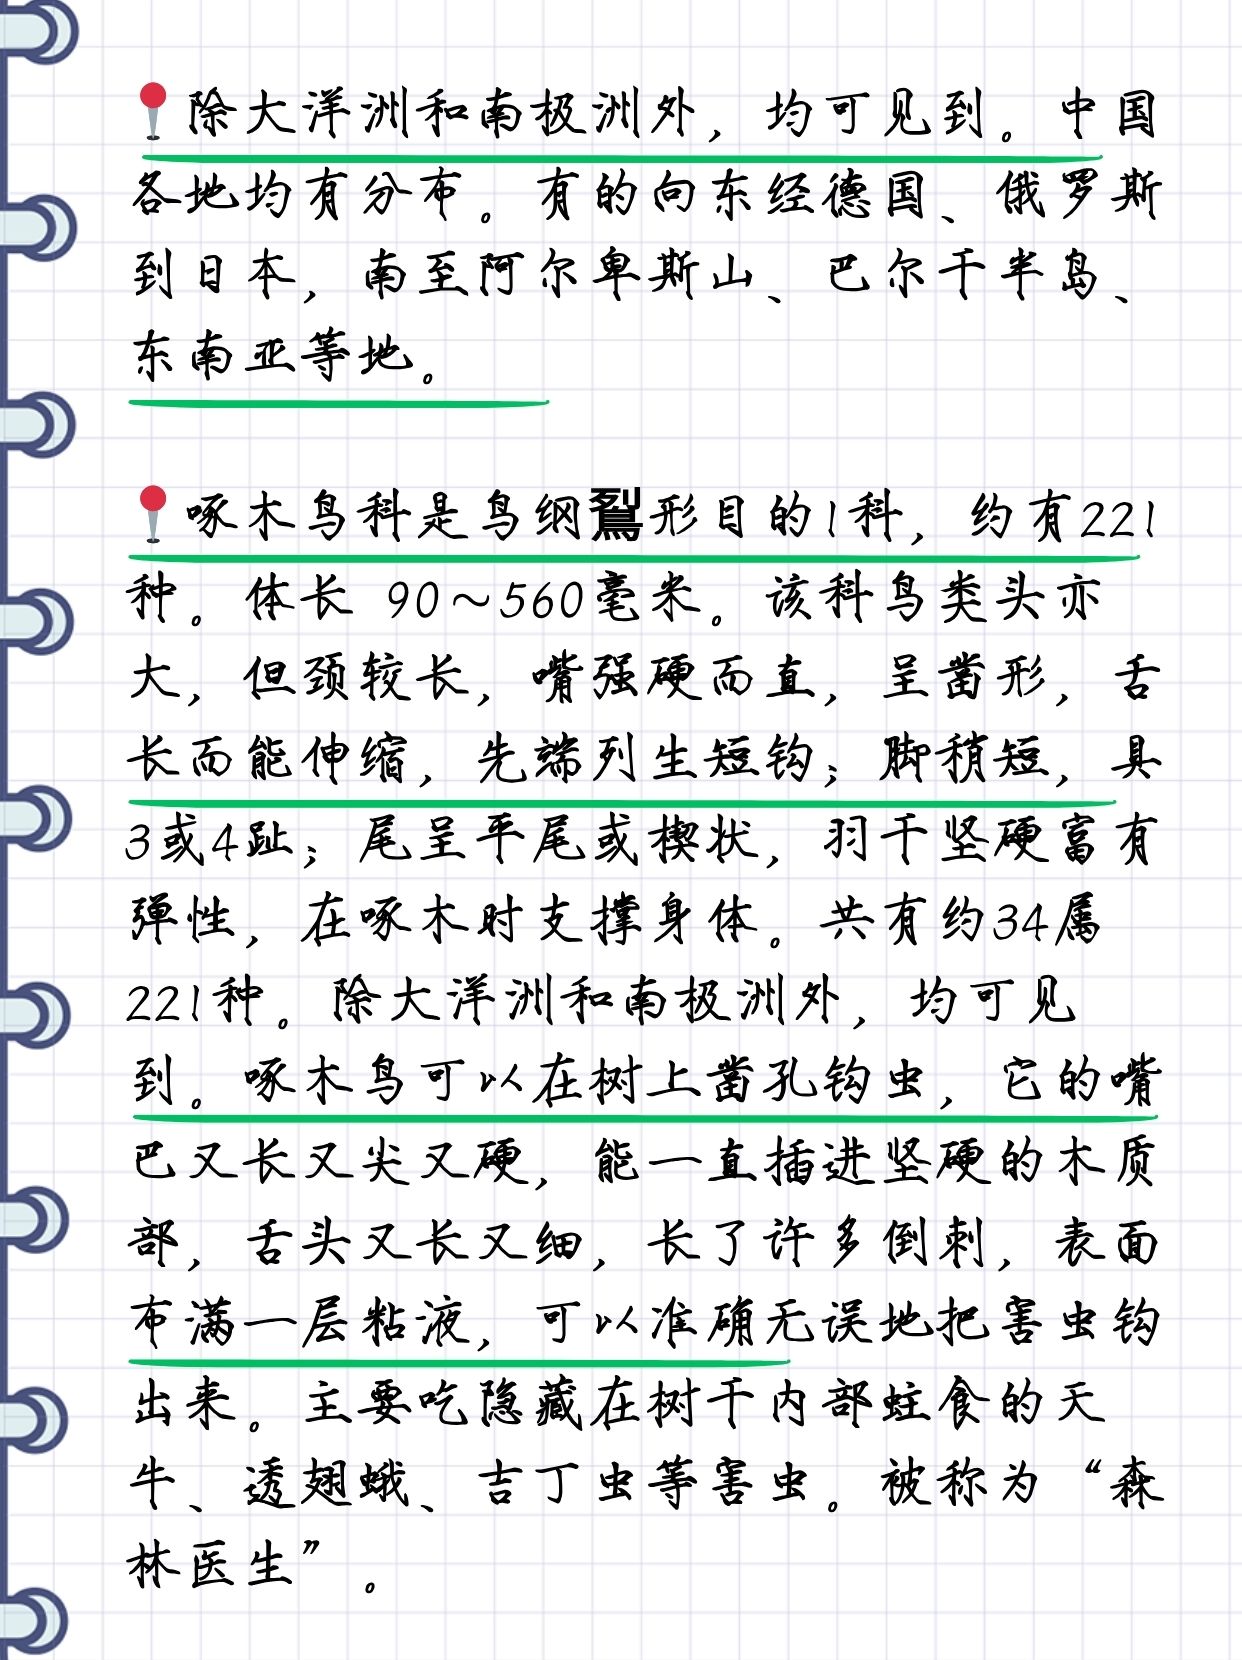 除大洋洲和南极洲外，均可见到。中国
各地均有分布。有的向东经德国、俄罗斯
到日本，南至阿尔卑斯山、巴尔干半岛、
东南亚等地。
啄木鸟科是鸟纲鴷形目的1科，约有221
种。体长 90～560毫米。该科鸟类头亦
大，但颈较长，嘴强硬而直，呈凿形，舌
长而能伸缩，先端列生短钩；脚稍短，具
3或4趾；尾呈平尾或楔状，羽干坚硬富有
弹性，在啄木时支撑身体。共有约34属
221种。除大洋洲和南极洲外，均可见
到。啄木鸟可以在树上凿孔钩虫，它的嘴
巴又长又尖又硬，能一直插进坚硬的木质
部，舌头又长又细，长了许多倒刺，表面
布满一层粘液，可以准确无误地把害虫钩
出来。主要吃隐藏在树干内部蛀食的天
牛、透翅蛾、吉丁虫等害虫。被称为“森
林医生”。